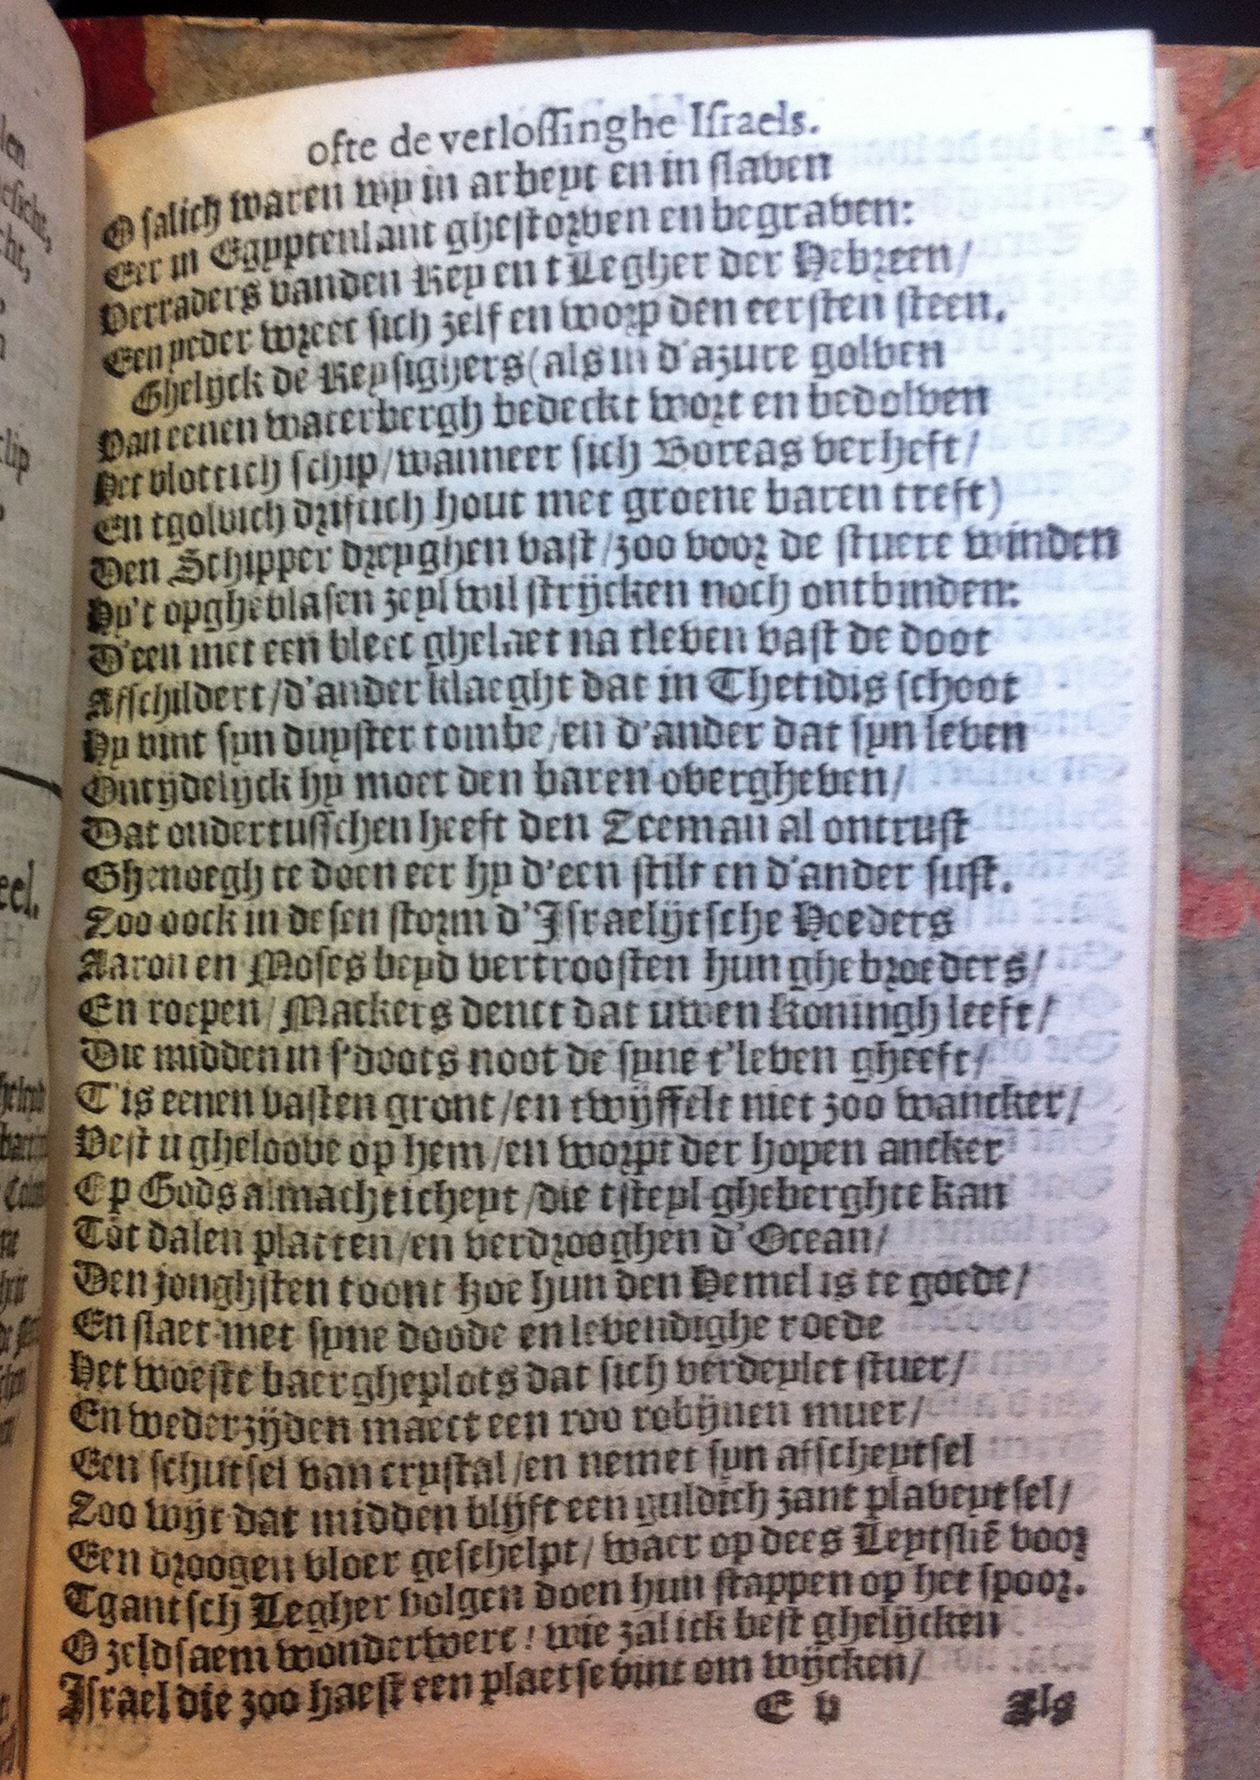 ofte de verlossinghe Israels.
O salich waren wy in arbeyt en in slaven
Eer in Egyptenlant ghestorven en begraven:
Verraders vanden Rey en t Legher der Hebreen/
Een yeder wreet sich zelf en worp den eersten steen.
Ghelyck de Reysighers (als in d'azure golven
Van eenen waterbergh bedeckt wort en bedolven
Het vlottich schip/wanneer sich Boreas verheft/
En tgolvich driftich hout met groene baren treft)
Den Schipper dreyghen vast/zoo voor de stuere winden
Hy't opgheblasen zeyl wil strijcken noch ontbinden:
D'een met een bleec ghelaet na tleven vast de doot
Afschildert/d'ander klaeght dat in Thetidis schoot
Hy vint syn duyster tombe/en d'ander dat syn leven
Ontijdelijck hy moet den baren overgheven/
Dat ondertusschen heeft den Zeeman al ontrust
Ghenoegh te doen eer hy d'een stilt en d'ander sust.
Zoo oock in desen storm d'Israelijtsche Hoeders
Aaron en Moses beyd vertroosten hun ghebroeders/
En roepen/Mackers denct dat uwen Koningh leeft/
Die midden in s'doots noot de syne t'leven gheeft/
T'is eenen vasten gront/en twijffelt niet zoo wancker/
Vest u gheloove op hem/en worpt der hopen ancker
Op Gods almachticheyt/die tsteyl gheberghte kan
Tot dalen platten/en verdrooghen d'Ocean/
Den jonghsten toont hoe hun den Hemel is te goede/
En slaet met syne doode en levendighe roede
Het woeste baergheplots dat sich verdeylet stuer/
En wederzijden maect een roo robijnen muer/
Een schutsel van crystal/en nemet syn afscheytsel
Zoo wijt dat midden blijft een guldich zant plaveytsel/
Een droogen vloer geschelpt/waer op dees Leytsliē voor
Tgantsch Legher volgen doen hun stappen op het spoor.
O zeldsaem wonderwerc! wie zal ick best ghelijcken
Israel die zoo haest een plaetse vint om wijcken/
E v Als